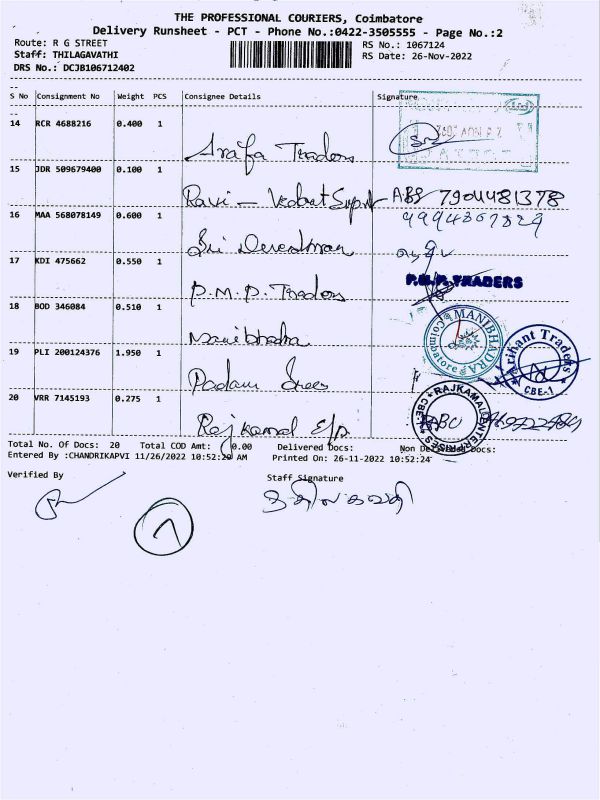 THE PROFESSIONAL COURIERS, Coimbatore
Delivery Runsheet - PCT - Phone No.:0422-3505555 - Page No.:2
Route: R G STREET RS No.: 1067124
Staff: THILAGAVATHI RS Date: 26-Nov-2022
DRS No.: DCJB106712402
S No Consignment No Weight PCS Consignee Details Signature
14 RCR 4688216 0.400 1
Arafa Traders
15 JDR 509679400 0.100 1
Ravi - ABS 7904481378
16 MAA 568078149 0.600 1
Sri
17 KDI 475662 0.550 1
P.M.P. Traders
P.M.P. TRADERS
18 BOD 346084 0.510 1
Manibhadra
MANIBHADRA
Coimbatore
19 PLI 200124376 1.950 1
Padam Shree
Arihant Traders
CBE-1
20 VRR 7145193 0.275 1
Rajkamal E/p
RAJKAMAL ENTERPRISES
CBE-1
Total No. Of Docs: 20 Total COD Amt: 0.00 Delivered Docs: Non Delivered Docs:
Entered By :CHANDRIKAPVI 11/26/2022 10:52:20 AM Printed On: 26-11-2022 10:52:24
Verified By Staff Signature
திலகவதி
7